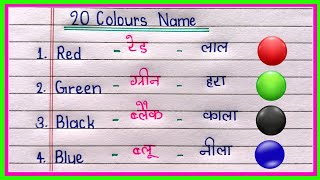 20 Colours Name
1. Red - रेड - लाल
2. Green - ग्रीन - हरा
3. Black - ब्लैक - काला
4. Blue - ब्लू - नीला